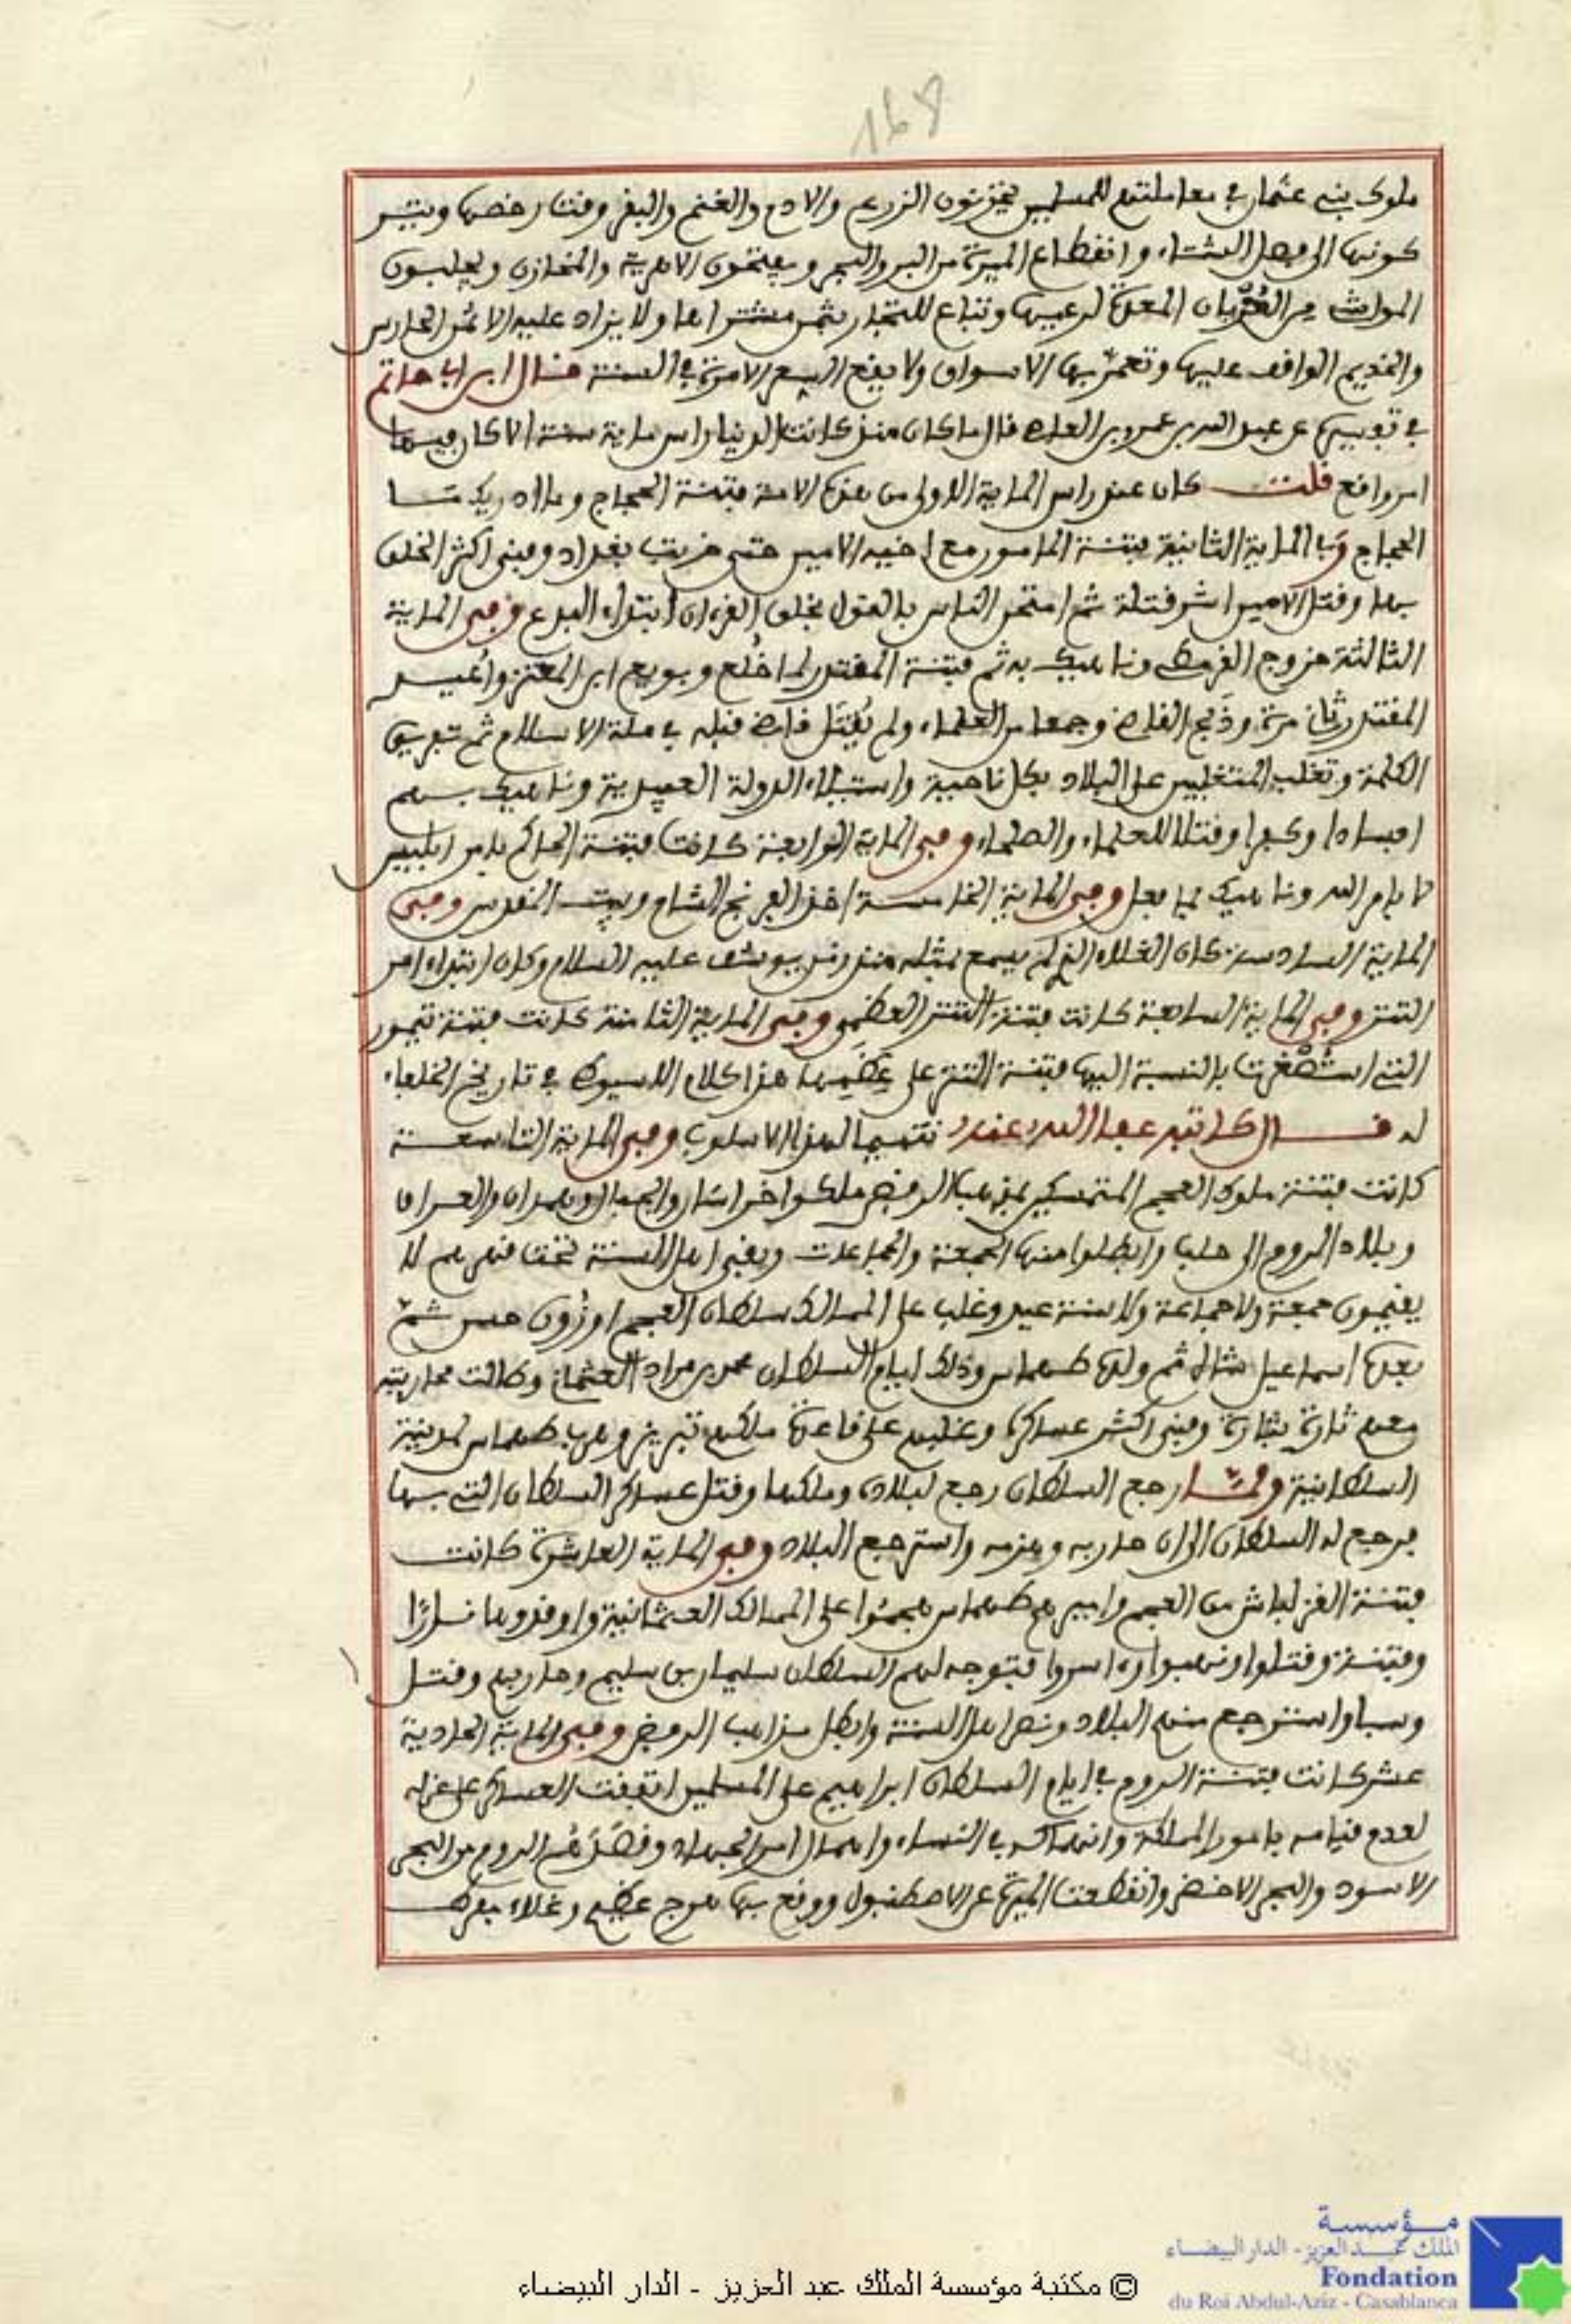 168
ملوك بني عثمان في معاملتهم للمسلمين يخزنون الزرع والادم والغنم والبقر وقت رخصها وتيسر
كونها الى فصل الشتاء وانقطاع الميرة من البر والبحر ويفتحون الاهرية والمخازن ويجلبون
المواشي من المعدة لرعيها وتباع للتجار بثمن مشتراها ولا يزاد عليه الا ثمن الحارس
والخديم الواقف عليها وتعمر بها الاسواق ولا يقع البيع الا مرة في السنة قال ابن ابي حاتم
في تفسيره عن عبد الله بن عمرو بن العاص قال ما كان منذ كانت الدنيا راس ماية سنة الا كان فيها
امر واقع قلت كان عند راس الماية الاولى من هذه الامة فتنة الحجاج وما ادريك ما
الحجاج وفي الماية الثانية فتنة المامون مع اخيه الامين حتى خربت بغداد وفني اكثر الخلق
بها وقتل الامين اشر قتلة ثم امتحن الناس بالقول بخلق القرءان ابتداء البدع وفي الماية
الثالثة خروج القرمطي وناهيك به ثم فتنة المقتدر لما خلع وبويع ابن المعتز واعيد
المقتدر ثاني مرة وذبح القاضي وجمعا من العلماء ولم يقتل قاض قبله في ملة الاسلام ثم تفريق
الكلمة وتغلب المتغلبين على البلاد بكل ناحية واستيلاء الدولة العبيدية وناهيك بهم
افسادا وكفرا وقتلا للعلماء والصلحاء وفي الماية الرابعة كانت فتنة الحاكم بامر ابليس
لا بامر الله وناهيك بما فعل وفي الماية الخامسة اخذ الفرنج الشام وبيت المقدس وفي
الماية السادسة كان الغلاء الذي لم يسمع بمثله منذ زمن يوسف عليه السلام وكان ابتداء امر
التتر وفي الماية السابعة كانت فتنة التتر العظمى وفي الماية الثامنة كانت فتنة تيمور
التي استصغرت بالنسبة اليها فتنة التتر على عظمها هذا كلام السيوطي في تاريخ الخلفاء
له قال كاتبه عفا الله عنه تتميما لهذا الاسلوب وفي الماية التاسعة
كانت فتنة ملوك العجم المتمسكين بمذهب الرفض ملكوا خراسان والجبال وهمدان والعراق
وبلاد الروم الى حلب وابطلوا منها الجمعة والجماعات وبقي اهل السنة تحت قهرهم لا
يقيمون جمعة ولا جماعة ولا سنة عيد وغلب على الممالك سلطان العجم اوزون حسن ثم
بعده اسماعيل شاه ثم ولده طهماس وذلك ايام السلطان محمد بن مراد العثماني وطالت محاربته
معهم تارة بتارة وفني اكثر عساكره وغلبهم على قاعدة ملكهم تبريز وهرب طهماس لمدينة
السلطانية ولما رجع السلطان رجع لبلاده وملكها وقتل عساكر السلطان التي بها
فرجع له السلطان الى ان حاربه وهزمه واسترجع البلاد وفي الماية العاشرة كانت
فتنة القزلباش من العجم واميرهم طهماس هجموا على الممالك العثمانية واوقدوها نارا
وفتنة وقتلوا ونهبوا واسروا فتوجه لهم السلطان سليمان بن سليم وحاربهم وقتل
وسبا واسترجع منهم البلاد ونصر اهل السنة وابطل مذاهب الرفض وفي الماية الحادية
عشر كانت فتنة الروم في ايام السلطان ابراهيم على المسلمين اتفقت العساكر على عزله
لعدم قيامه بامور المملكة وانهماكه في النساء واهمال امر الجهاد وقطع الروم من البحر
الاسود والبحر الاخضر وانقطعت الميرة عن الاصطنبول ووقع بها هرج عظيم وغلاء مفرط
مؤسسة
الملك عبد العزيز - الدار البيضاء
Fondation
du Roi Abdul-Aziz - Casablanca
© مكتبة مؤسسة الملك عبد العزيز - الدار البيضاء